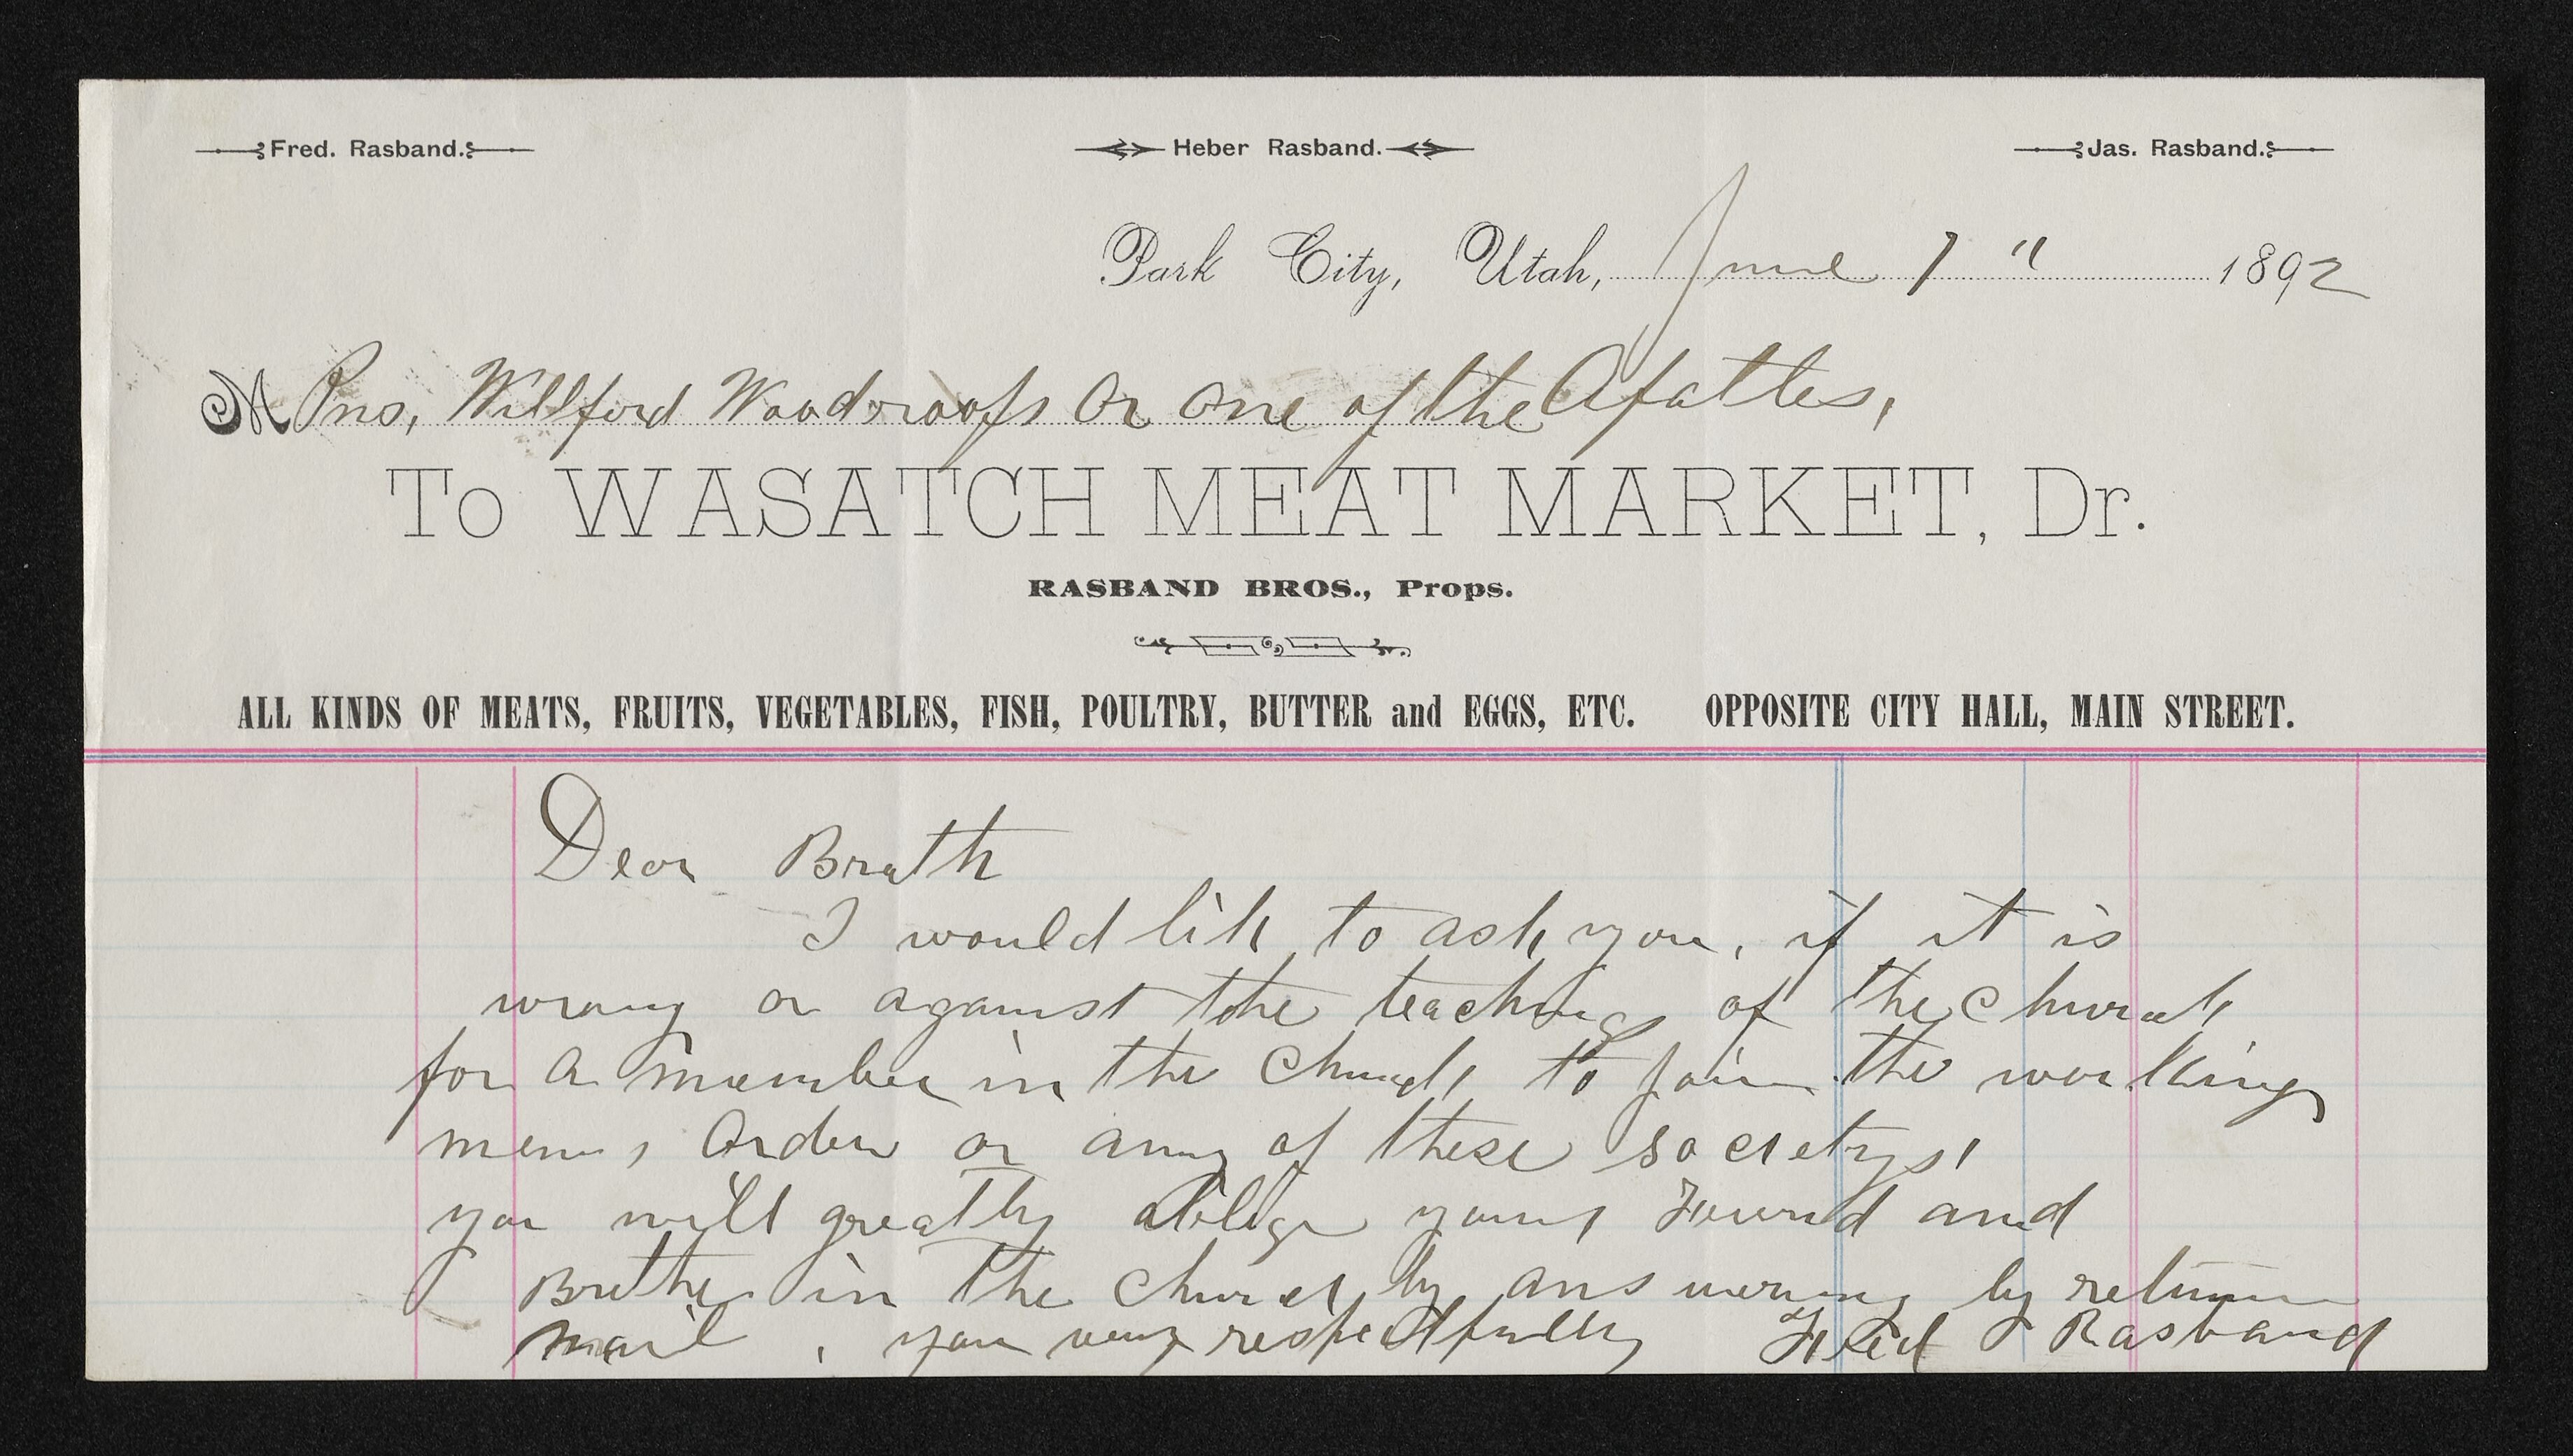 Fred. Rasband. Heber Rasband. Jas. Rasband.
Park City, Utah, June 7" 1892
M Pns, Willford Woodrooffs Or one of the Apattles,
To WASATCH MEAT MARKET, Dr.
RASBAND BROS., Props.
ALL KINDS OF MEATS, FRUITS, VEGETABLES, FISH, POULTRY, BUTTER and EGGS, ETC. OPPOSITE CITY HALL, MAIN STREET.
Dear Broth
I would lik to ask you, if it is
wrong or against the teachings of the Church
for a member in the Church to join the working
mens, Order or any of these societys,
you will greatly oblige your Friend and
Brother in the Church by answering by return
mail, you very respectfully Fred Rasband